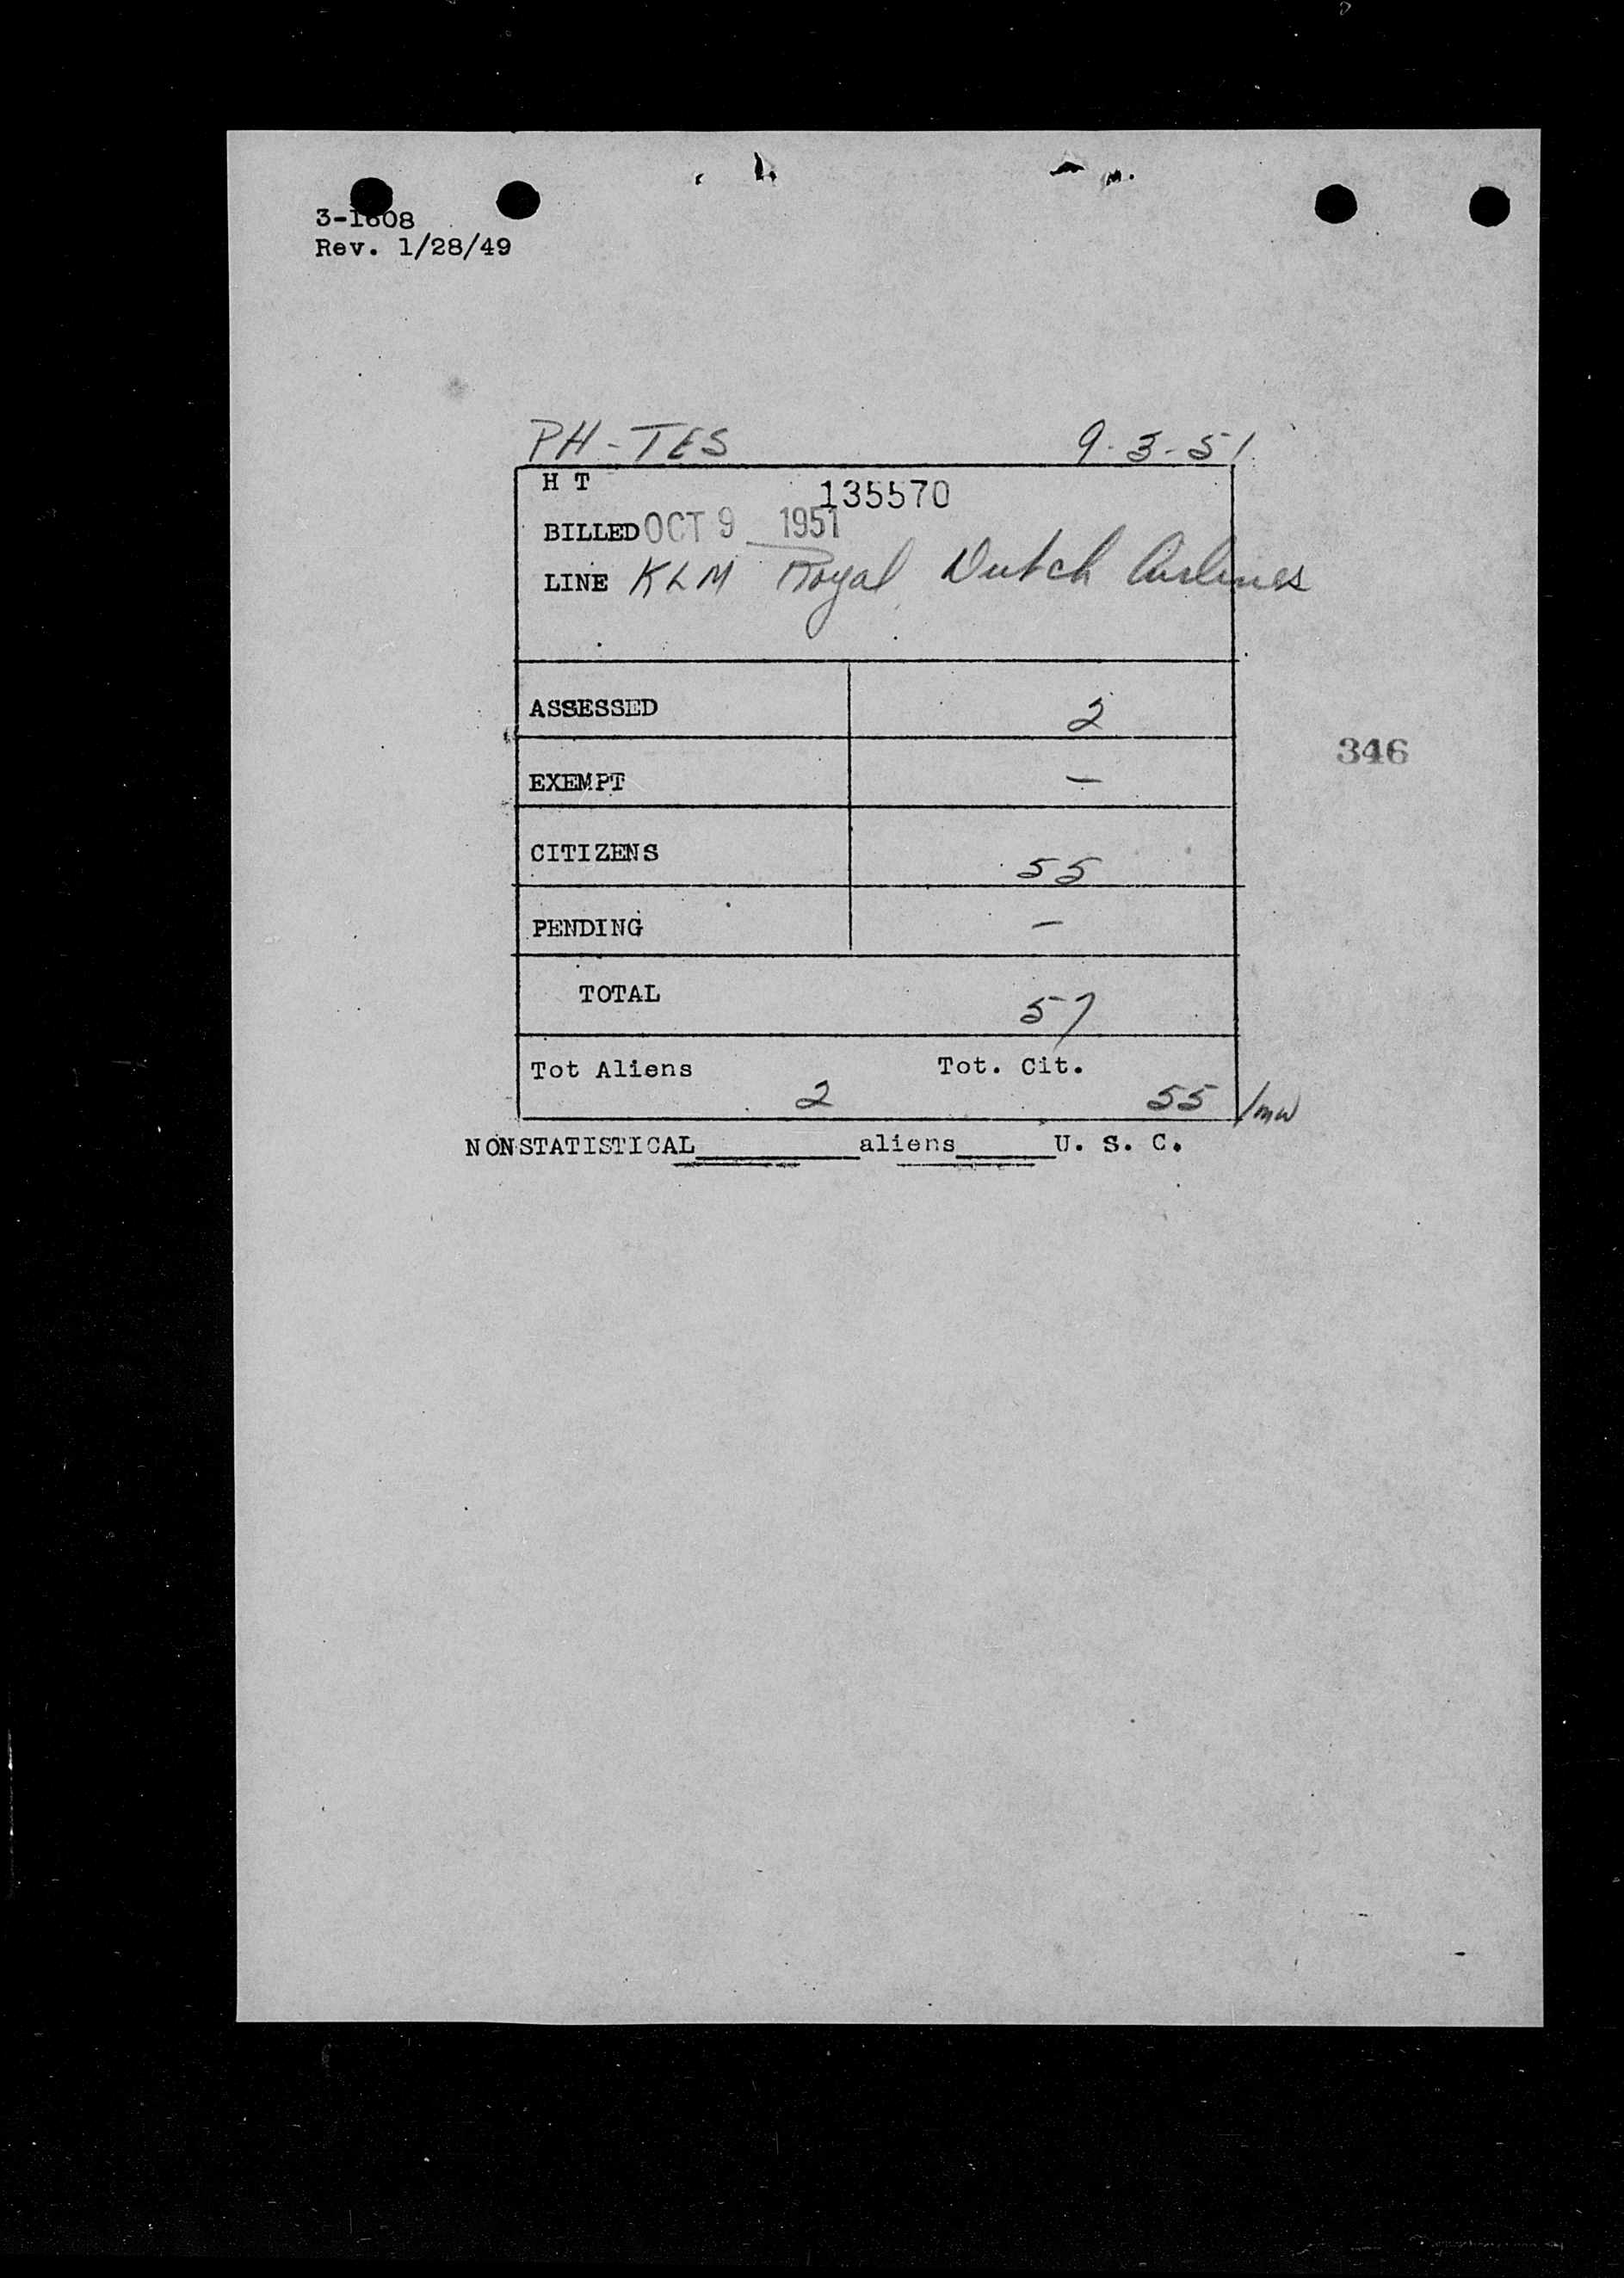 3-1608
Rev. 1/28/49
PH-TES 9-3-51
H T 135570
BILLED OCT 9 1951
LINE KLM Royal Dutch Airlines
ASSESSED 2
346
EXEMPT —
CITIZENS 55
PENDING —
TOTAL 57
Tot Aliens Tot. Cit.
2 55 /mw
NONSTATISTICAL__________aliens______U. S. C.